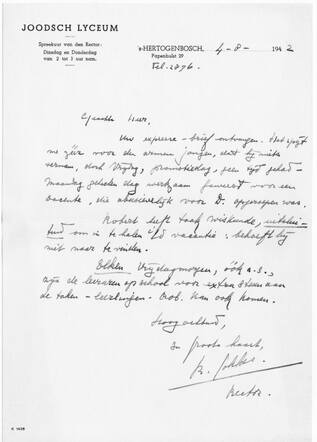 JOODSCH LYCEUM
Spreekuur van den Rector:
Dinsdag en Donderdag
van 2 tot 3 uur nam.
's-HERTOGENBOSCH, 4-8- 1942
Papenhulst 29
Tel. 2876.
Geachte Heer,
Uw expresse-brief ontvangen. Het spijt
me zéér voor den armen jongen, dat hij niets
vernam, doch Vrijdag, promotiedag, geen tijd gehad-
maandag geheelen dag werkzaam geweest voor een
docente, die abusievelijk voor D. opgeroepen was.
Robert heeft taak wiskunde, uitslui-
tend om in te halen i/d vacantie: behoeft hij
niet naar te
Elken Vrijdagmorgen, óók a.s.,
zijn de leeraren op school voor extra steun aan
de taken - leerlingen. Rob. kan ook komen.
Hoogachtend,
In groote haast,
Rector.
K 1428